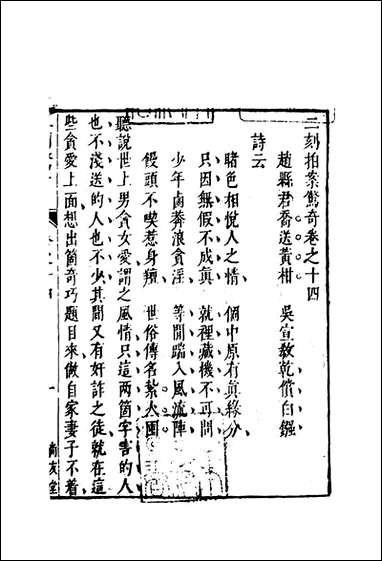 二刻拍案驚奇卷之十四
趙縣君喬送黃柑　吳宣教乾償白鏹
詩云
睹色相悅人之情　個中原有真緣分
只因無假不成真　就裡藏機不可問
少年鹵莽浪貪淫　等閒踹入風流陣
饅頭不喫惹身羶　世俗傳名紮火囤
聽說世上男貪女愛謂之風情只這兩箇字害的人
也不淺送的人也不少其間又有奸詐之徒就在這
些貪愛上面想出箇奇巧題目來做自家妻子不着
尚友堂